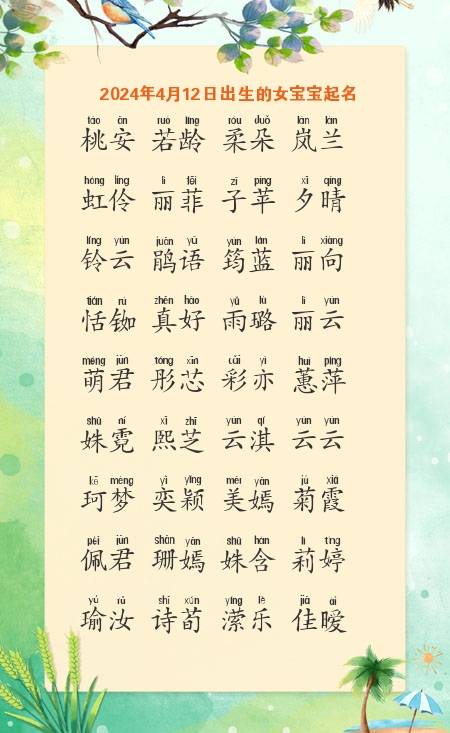 2024年4月12日出生的女宝宝起名
táo ān ruò líng róu duǒ lán lán
桃安 若龄 柔朵 岚兰
hóng líng lì fēi zǐ píng xī qíng
虹伶 丽菲 子苹 夕晴
líng yún juān yǔ yún lán lì xiàng
铃云 鹃语 筠蓝 丽向
tián rú zhēn hǎo yǔ lù lì yún
恬铷 真好 雨璐 丽云
méng jūn tóng xīn cǎi yì huì píng
萌君 彤芯 彩亦 蕙萍
shū ní xī zhī yún qí yún yún
姝霓 熙芝 云淇 云云
kē mèng yì yǐng měi yān jú xiá
珂梦 奕颖 美嫣 菊霞
pèi jūn shān yān shū hán lì tíng
佩君 珊嫣 姝含 莉婷
yú rǔ shī xún yíng lè jiā ài
瑜汝 诗荀 潆乐 佳暧